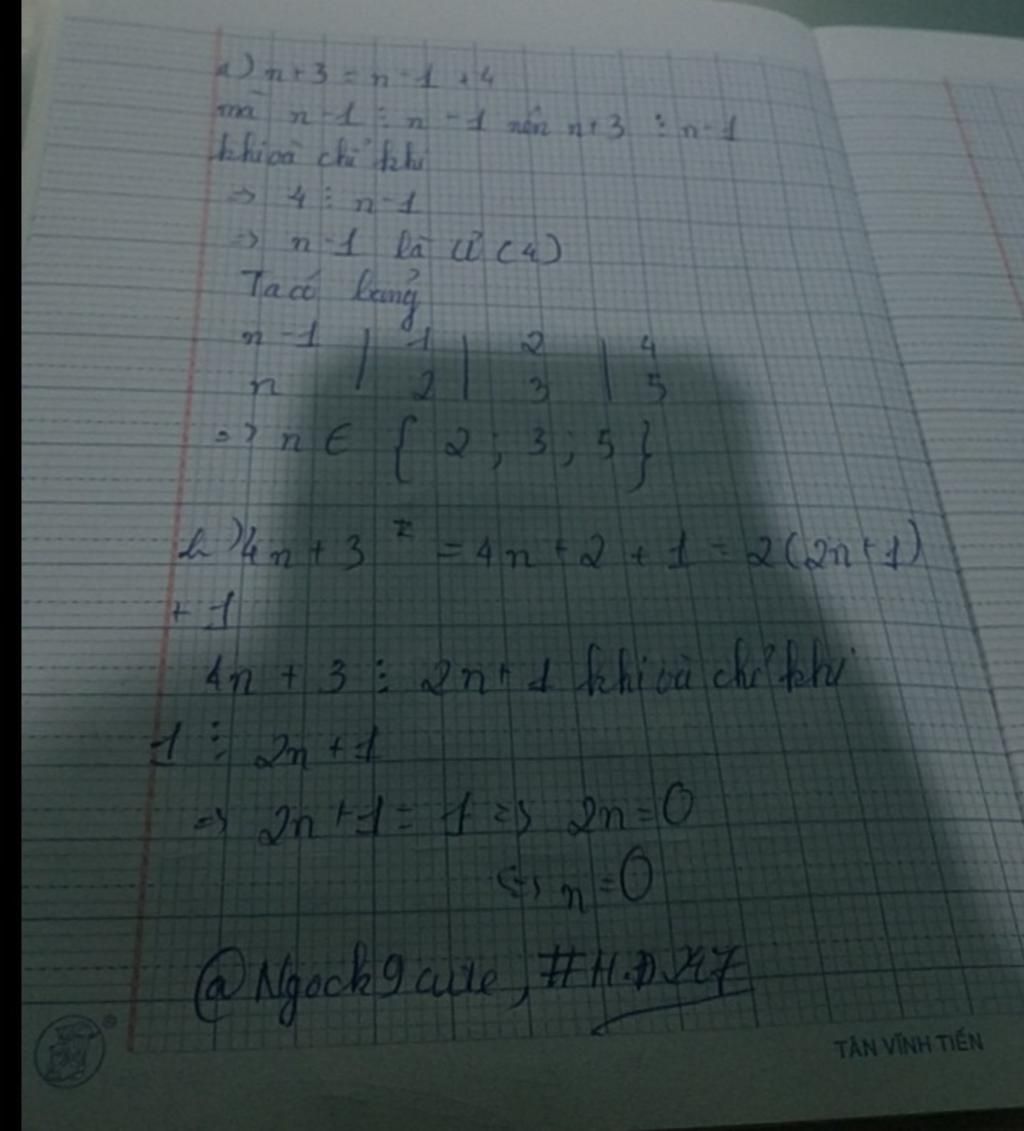 a) n+3 = n-1 + 4
mà n-1 ⋮ n-1 nên n+3 ⋮ n-1
khi và chỉ khi
=> 4 ⋮ n-1
=> n-1 là Ư (4)
Ta có bảng
n-1 | 1 | 2 | 4
n | 2 | 3 | 5
=> n ∈ { 2 ; 3 ; 5 }
b) 4n + 3 = 4n + 2 + 1 = 2(2n+1)
+ 1
4n + 3 ⋮ 2n+1 khi và chỉ khi
1 ⋮ 2n+1
=> 2n+1 = 1 => 2n=0
<=> n=0
@Ngock9cute, #H.Đ.
TÂN VĨNH TIẾN